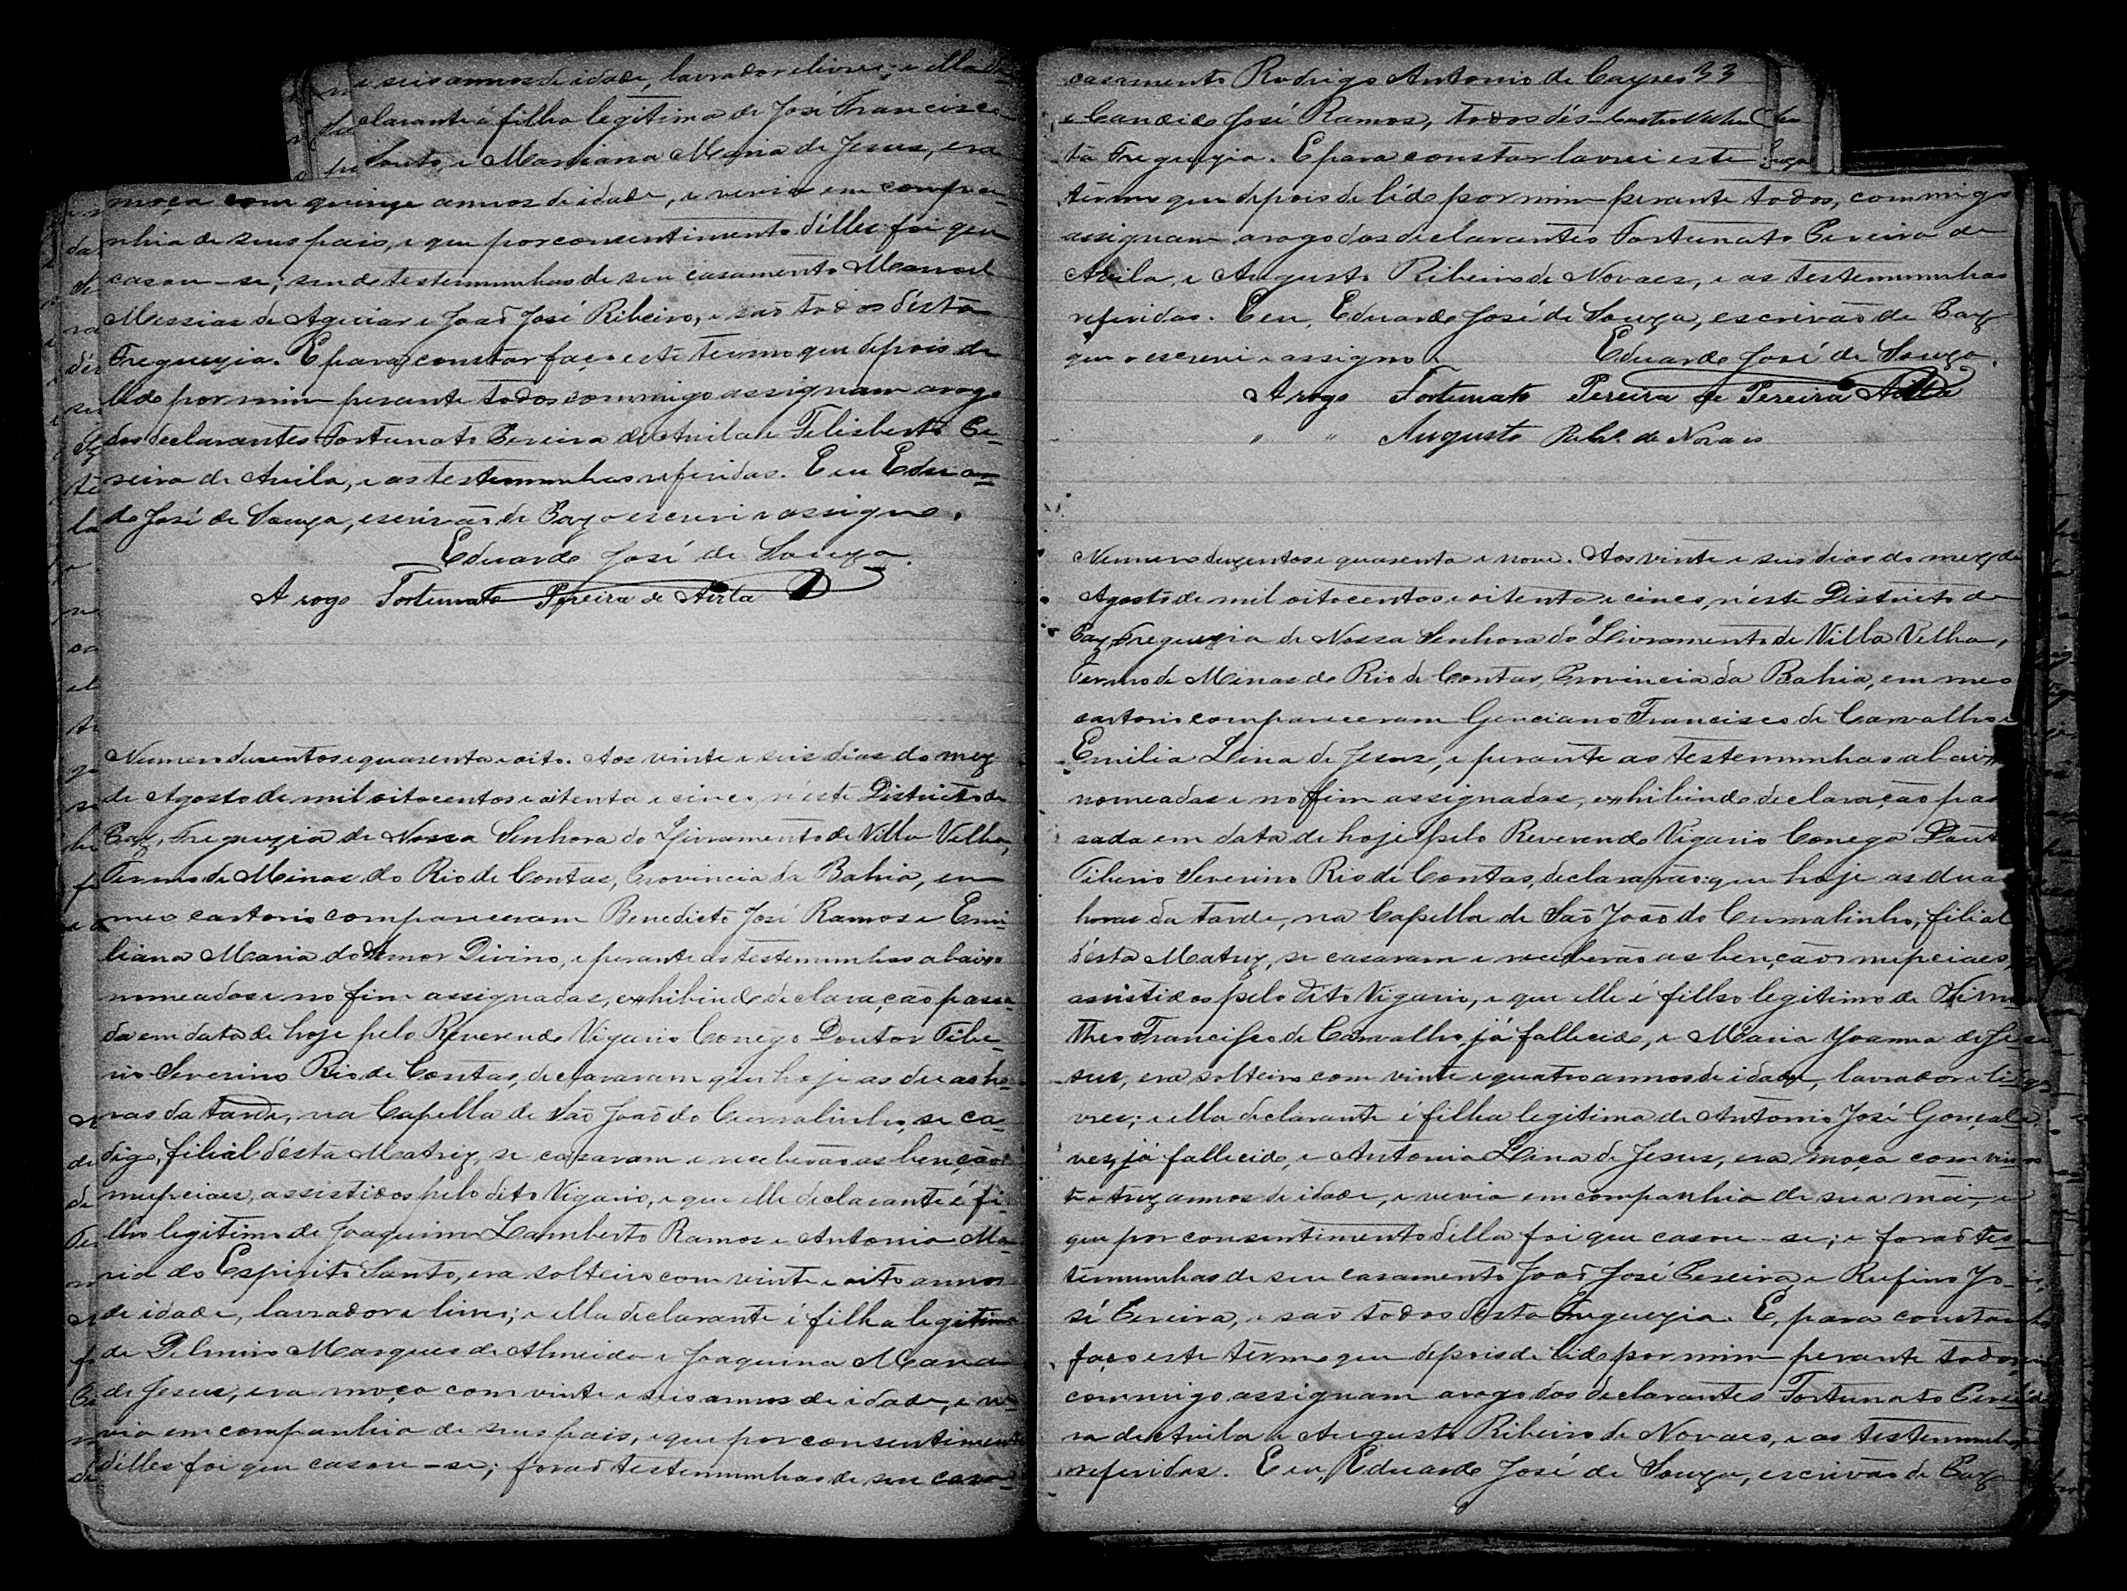 e seis annos de idade, lavrador e livre; e ella de-
clarante é filha legitima de José Francisco
Souto, e Marciana Maria de Jesus, era
moça com quinze annos de idade, e vevia em compa-
nhia de seus pais, e que por consentimento d'élles foi que
casou-se; sendo testemunhas de seu casamento Manoel
Messias de Aguiar e João José Ribeiro, e são todos désta
Freguezia. E para constar faço este termo que depois de
lido por mim perante todos commigo assignam a rogo
dos declarantes Fortunato Pereira de Avila e Felisberto Pe-
reira de Avila, e as testemunhas referidas. E eu Eduar-
do José de Souza, escrivão de Paz o escrevi e assigno.
Eduardo José de Souza.
A rogo Fortunato Pereira de Avila
Numero dusentos e quarenta e oito. Aos vinte e seis dias do mez
de Agosto de mil oitocentos e oitenta e cinco, n'éste Districto de
Paz, Freguezia de Nossa Senhora do Livramento de Villa Velha,
Termo de Minas do Rio de Contas, Provincia da Bahia, em
meo cartorio compareceram Benedicto José Ramos e Emi-
liana Maria do Amor Divino, e perante as testemunhas abaixo
nomeados e no fim assignadas, exhibindo declaração passa-
da em data de hoje pelo Reverendo Vigario Conego Doutor Tibe-
rio Severino Rio de Contas, declararam que hoje as duas ho-
ras da tarde, na Capella de São João do Curralinho, se ca-
digo, filial désta Matriz, se casaram e receberão as benções
nupciaes, assistidos pelo dito Vigario, e que elle declarante é fi-
lho legitimo de Joaquim Lamberto Ramos e Antonia Ma-
ria do Espirito Santo, era solteiro com vinte e oito annos
de idade, lavrador e livre; e ella declarante é filha legitima
de Marques de Almeida e Joaquina Maria
de Jesus, era moça com vinte e seis annos de idade, e ve-
via em companhia de seus pais, e que por consentimento
d'élles foi que casou-se; forão testemunhas de seu casa-
casamento Rodrigo Antonio de Cayres 33
e Candido José Ramos, todos dés-
ta Freguezia. E para constar lavrei este
termo que depois de lido por mim perante todos, commigo
assignam a rogo dos declarantes Fortunato Pereira de
Avila, e Augusto Ribeiro de Novaes, e as testemunhas
referidas. E eu, Eduardo José de Souza, escrivão de Paz
que o escrevi e assigno.
Eduardo José de Souza.
A rogo Fortunato Pereira de Pereira Avila
" " Augusto Rib.º de Novaes
Numero duzentos e quarenta e nove. Aos vinte e seis dias do mez de
Agosto de mil oitocentos e oitenta e cinco, n'éste Districto de
Paz, Freguezia de Nossa Senhora do Livramento de Villa Velha,
Termo de Minas do Rio de Contas, Provincia da Bahia, em meo
cartorio compareceram Genciano Francisco de Carvalho e
Emilia Lina de Jesus, e perante as testemunhas abaixo
nomeadas e no fim assignadas, exhibindo declaração pas
sada em data de hoje pelo Reverendo Vigario Conego Dout
Tiberio Severino Rio de Contas, declararão: que hoje as duas
horas da tarde, na Capella de São João do Curralinho, filial
d'ésta Matriz, se casaram e receberão as benções nupciaes,
assistidos pelo dito Vigario, e que elle é filho legitimo de
theo Francisco de Carvalho, já fallecido, e Maria Joanna de Je
sus, era solteiro com vinte e quatro annos de idade, lavrador e li
vre; e ella declarante é filha legitima de Antonio José Gonçal-
ves, já fallecido, e Antonia Lina de Jesus, era moça com vin
te e trez annos de idade, e vevia em companhia de sua mãi, e
que por consentimento d'élla foi que casou-se; e forão tes-
temunhas de seu casamento João José Pereira e Rufino Jo-
sé Pereira, e são todos désta Freguezia. E, para constar
faço este termo que depois de lido por mim perante todos,
commigo assignam a rogo dos declarantes Fortunato Perei
ra de Avila e Augusto Ribeiro de Novaes, e as testemunhas
referidas. E eu, Eduardo José de Souza, escrivão de Paz